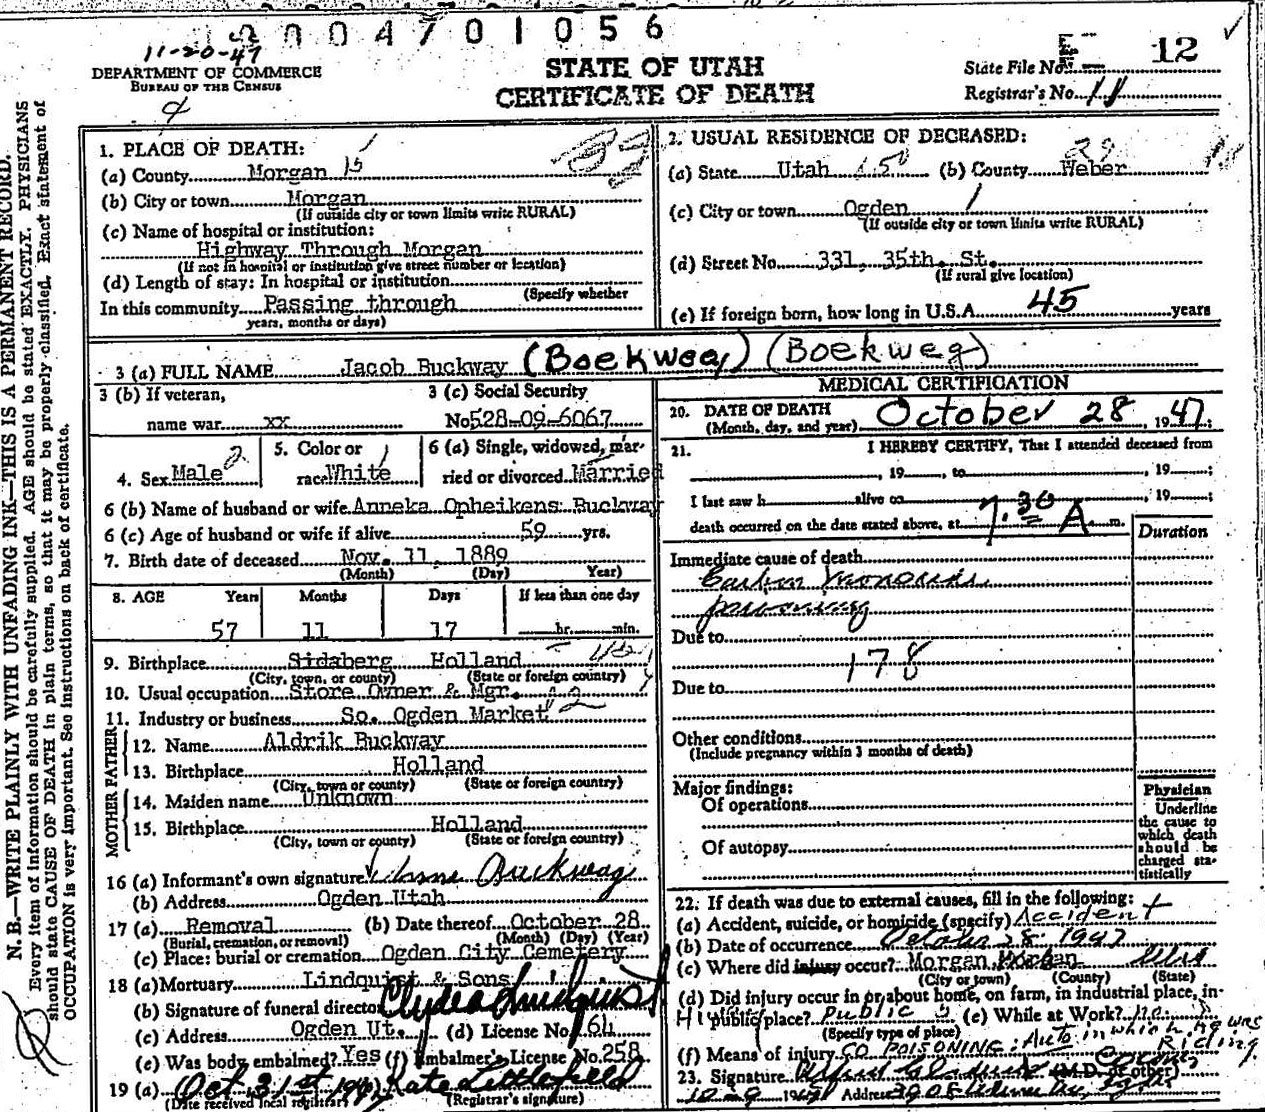 004701056
11-20-47
DEPARTMENT OF COMMERCE
BUREAU OF THE CENSUS
STATE OF UTAH
CERTIFICATE OF DEATH
State File No. 12
Registrar's No. 11
N. B.—WRITE PLAINLY WITH UNFADING INK—THIS IS A PERMANENT RECORD.
Every item of information should be carefully supplied. AGE should be stated EXACTLY. PHYSICIANS
should state CAUSE OF DEATH in plain terms, so that it may be properly classified. Exact statement of
OCCUPATION is very important. See instructions on back of certificate.
1. PLACE OF DEATH:
(a) County Morgan 15
(b) City or town Morgan
(If outside city or town limits write RURAL)
(c) Name of hospital or institution:
Highway Through Morgan
(If not in hospital or institution give street number or location)
(d) Length of stay: In hospital or institution
(Specify whether
In this community Passing through
years, months or days)
2. USUAL RESIDENCE OF DECEASED:
29
(a) State Utah (b) County Weber
(c) City or town Ogden 1
(If outside city or town limits write RURAL)
(d) Street No. 331, 35th. St.
(If rural give location)
(e) If foreign born, how long in U.S.A. 45 years
3 (a) FULL NAME Jacob Buckway (Boekweg) (Boekweg)
3 (b) If veteran, 3 (c) Social Security
name war xx No. 528-09-6067
4. Sex Male 2 5. Color or race White 1 6 (a) Single, widowed, married or divorced Married
6 (b) Name of husband or wife Anneka Opheikens Buckway
6 (c) Age of husband or wife if alive 59 yrs.
7. Birth date of deceased Nov. 11, 1889
(Month) (Day) Year)
8. AGE Years Months Days If less than one day
57 11 17 hr. min.
9. Birthplace Sidaberg Holland
(City, town, or county) (State or foreign country)
10. Usual occupation Store Owner & Mgr.
11. Industry or business So. Ogden Market
FATHER
12. Name Aldrik Buckway
13. Birthplace Holland
(City, town or county) (State or foreign country)
MOTHER
14. Maiden name Unknown
15. Birthplace Holland
(City, town or county) (State or foreign country)
16 (a) Informant's own signature Buckway
(b) Address Ogden Utah
17 (a) Removal (b) Date thereof October 28
(Burial, cremation, or removal) (Month) (Day) (Year)
(c) Place: burial or cremation Ogden City Cemetery
18 (a) Mortuary Lindquist & Sons
(b) Signature of funeral director Clyde Lindquist
(c) Address Ogden Ut. (d) License No. 64
(e) Was body embalmed? Yes (f) Embalmer's License No. 258
19 (a) Oct 31st 1947 Kate Littlefield
(Date received local registrar) (Registrar's signature)
MEDICAL CERTIFICATION
20. DATE OF DEATH October 28, 1947
(Month, day, and year)
21. I HEREBY CERTIFY, That I attended deceased from
, 19 , to , 19 ;
I last saw h alive on , 19 ;
death occurred on the date stated above, at 7.30 A m.
Duration
Immediate cause of death
Carbon Monoxide
poisoning
Due to
178
Due to
Other conditions
(Include pregnancy within 3 months of death)
Major findings:
Of operations
Of autopsy
Physician
Underline
the cause to
which death
should be
charged sta-
tistically
22. If death was due to external causes, fill in the following:
(a) Accident, suicide, or homicide (specify) Accident
(b) Date of occurrence October 28 1947
(c) Where did injury occur? Morgan Morgan Utah
(City or town) (County) (State)
(d) Did injury occur in or about home, on farm, in industrial place, in
public place? Public (e) While at Work? no
(Specify type of place)
(f) Means of injury CO POISONING: Auto in which he was Riding
23. Signature (M.D. or other)
Address